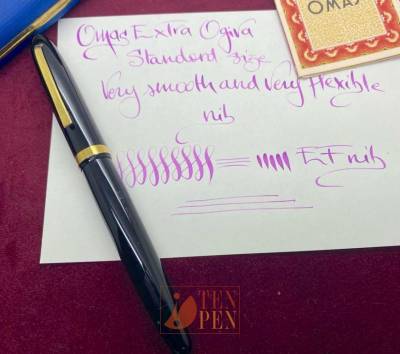 OMAS
Omas Extra Ogiva
Standard size
Very smooth and very flexible
nib
EF nib
TEN
PEN